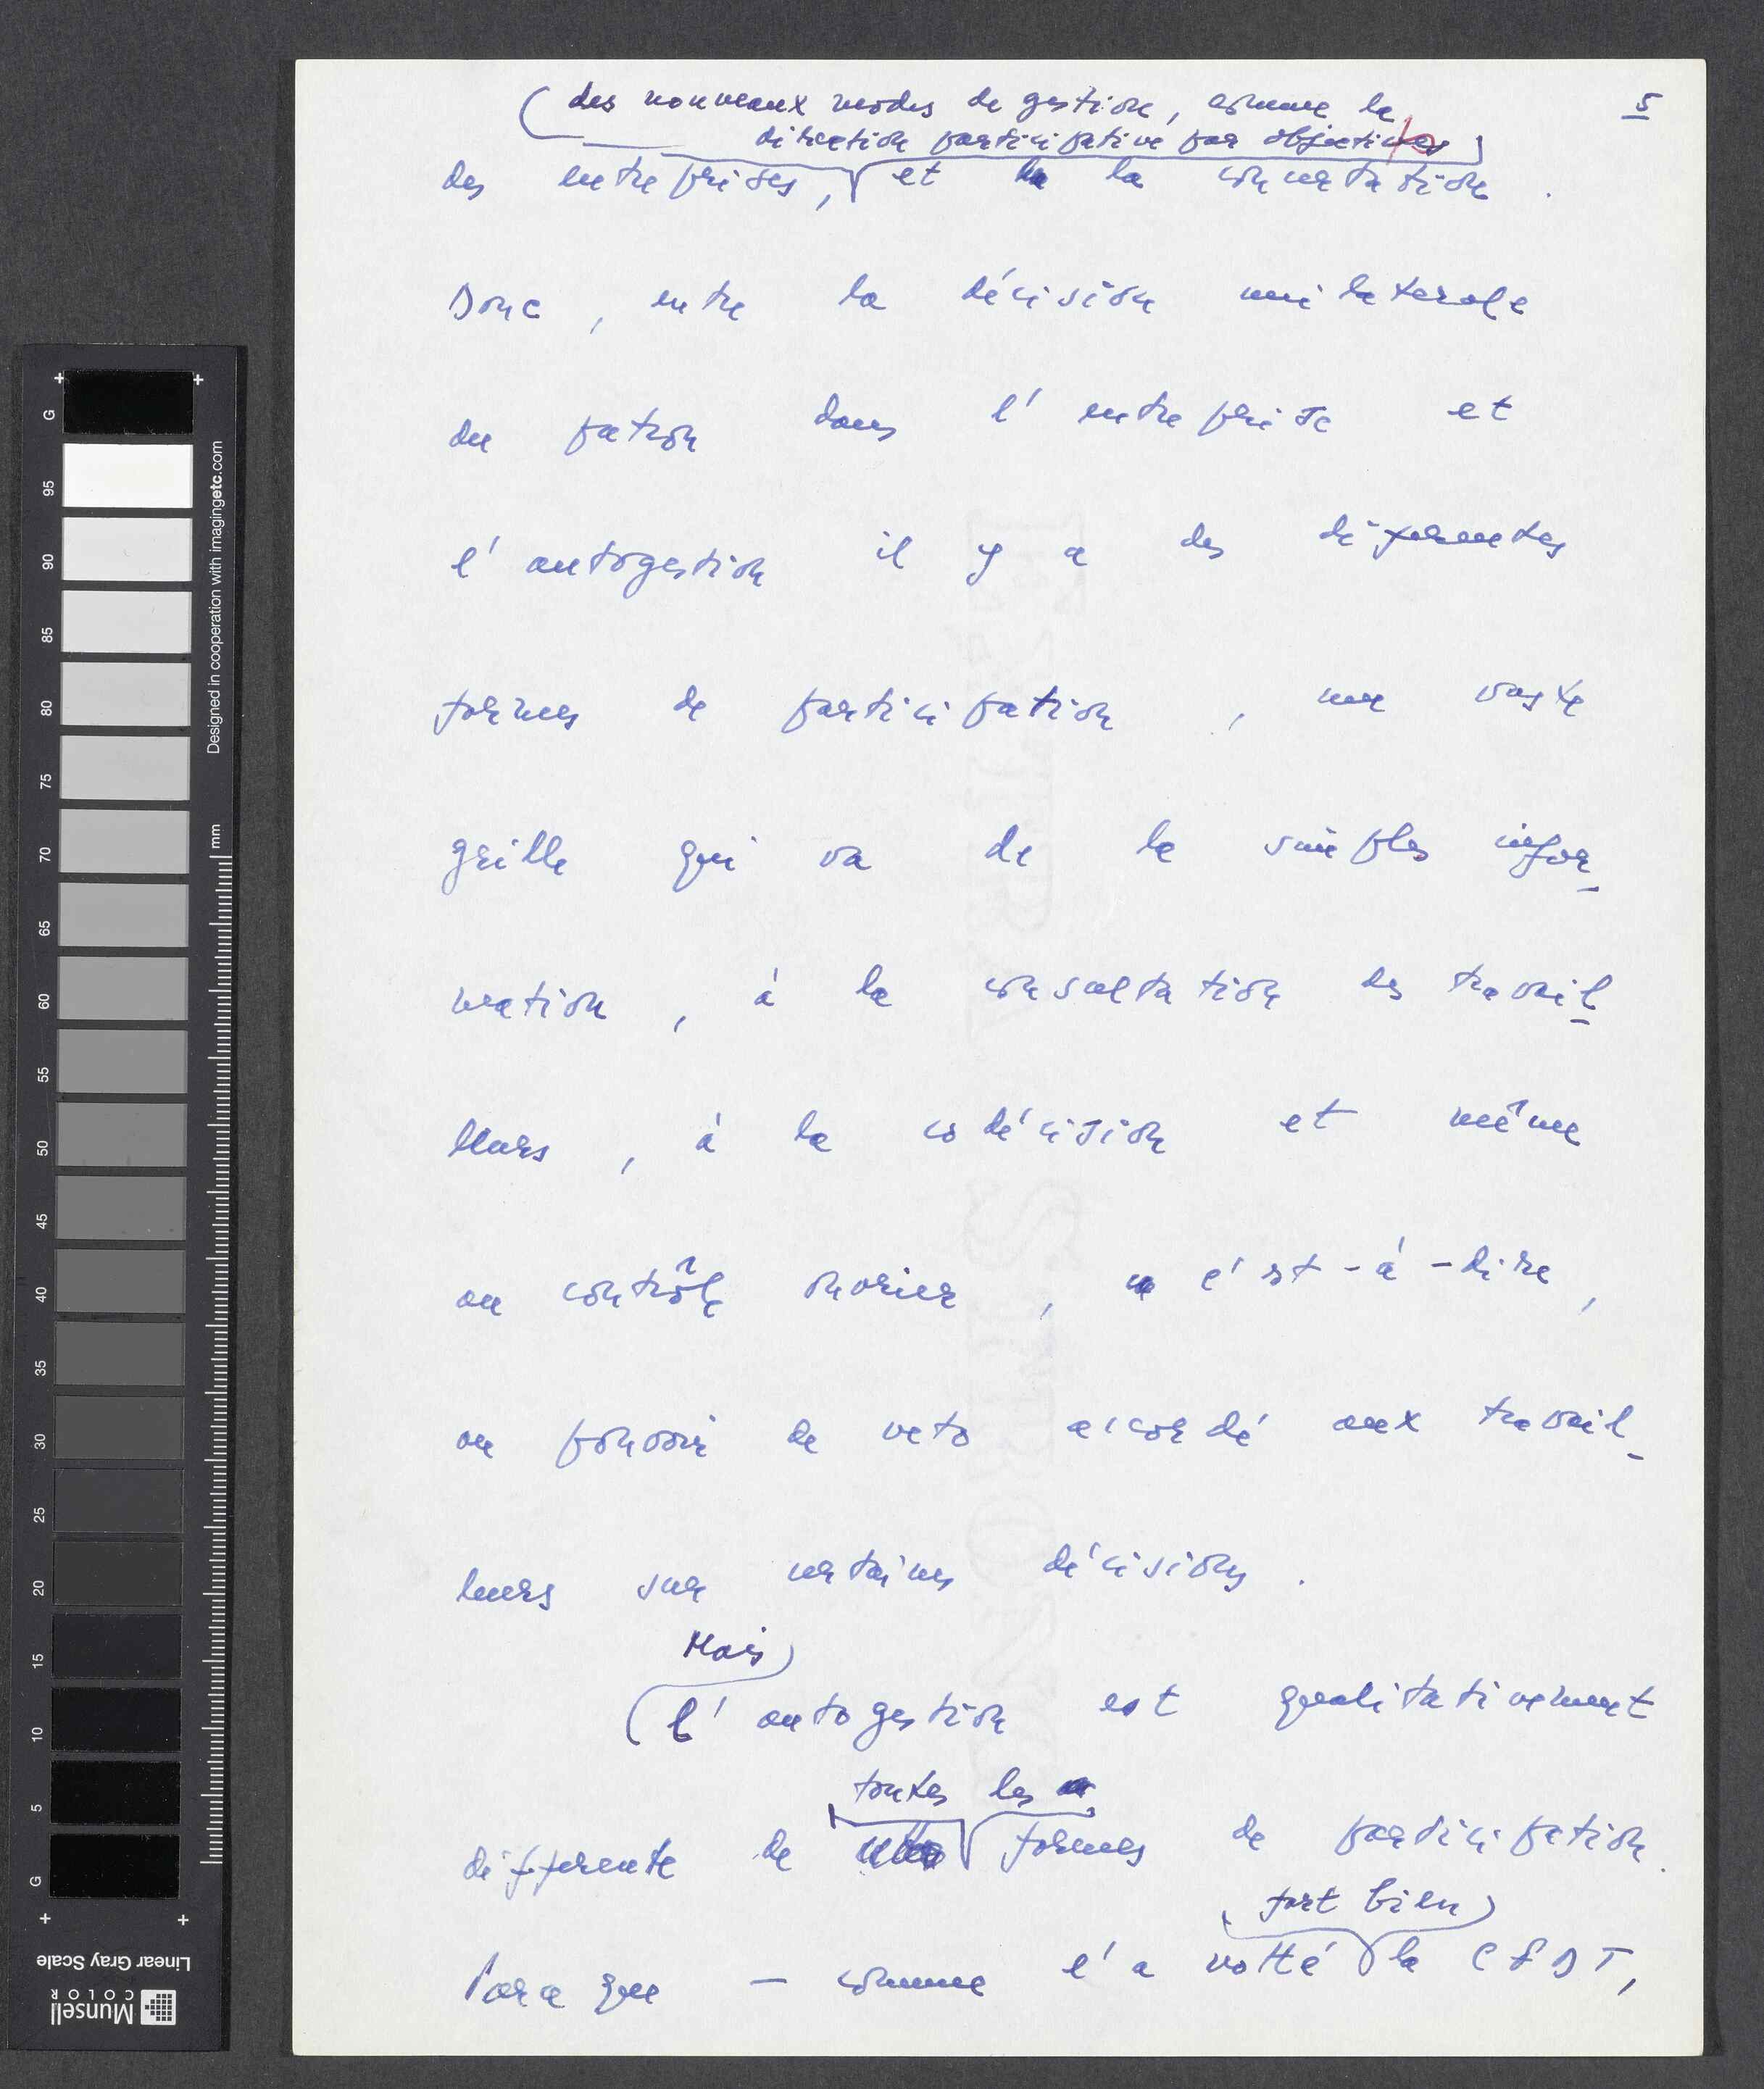 5
des nouveaux modes de gestion, comme la
direction participative par objectives
des entreprises, et la concertation.
Donc, entre la décision unilaterale
du patron dans l'entreprise et
l'autogestion il y a des differentes
formes de participation, une vaste
grille qui va de la simples infor_
mation, à la consultation des travail_
lleurs, à la codécision et même
au contrôle ouvrier, c'est-à-dire,
au pouvoir de veto accordé aux travail_
leurs sur certaines décisions.
Mais
l'autogestion est qualitativement
toutes les
differente de formes de participation.
fort bien
Parce que — comme l'a votté la CFDT,
G
95
90
85
80
75
70
65
60
55
50
45
40
35
30
25
20
15
10
5
G
mm
Designed in cooperation with imagingetc.com
Linear Gray Scale
Munsell
COLOR